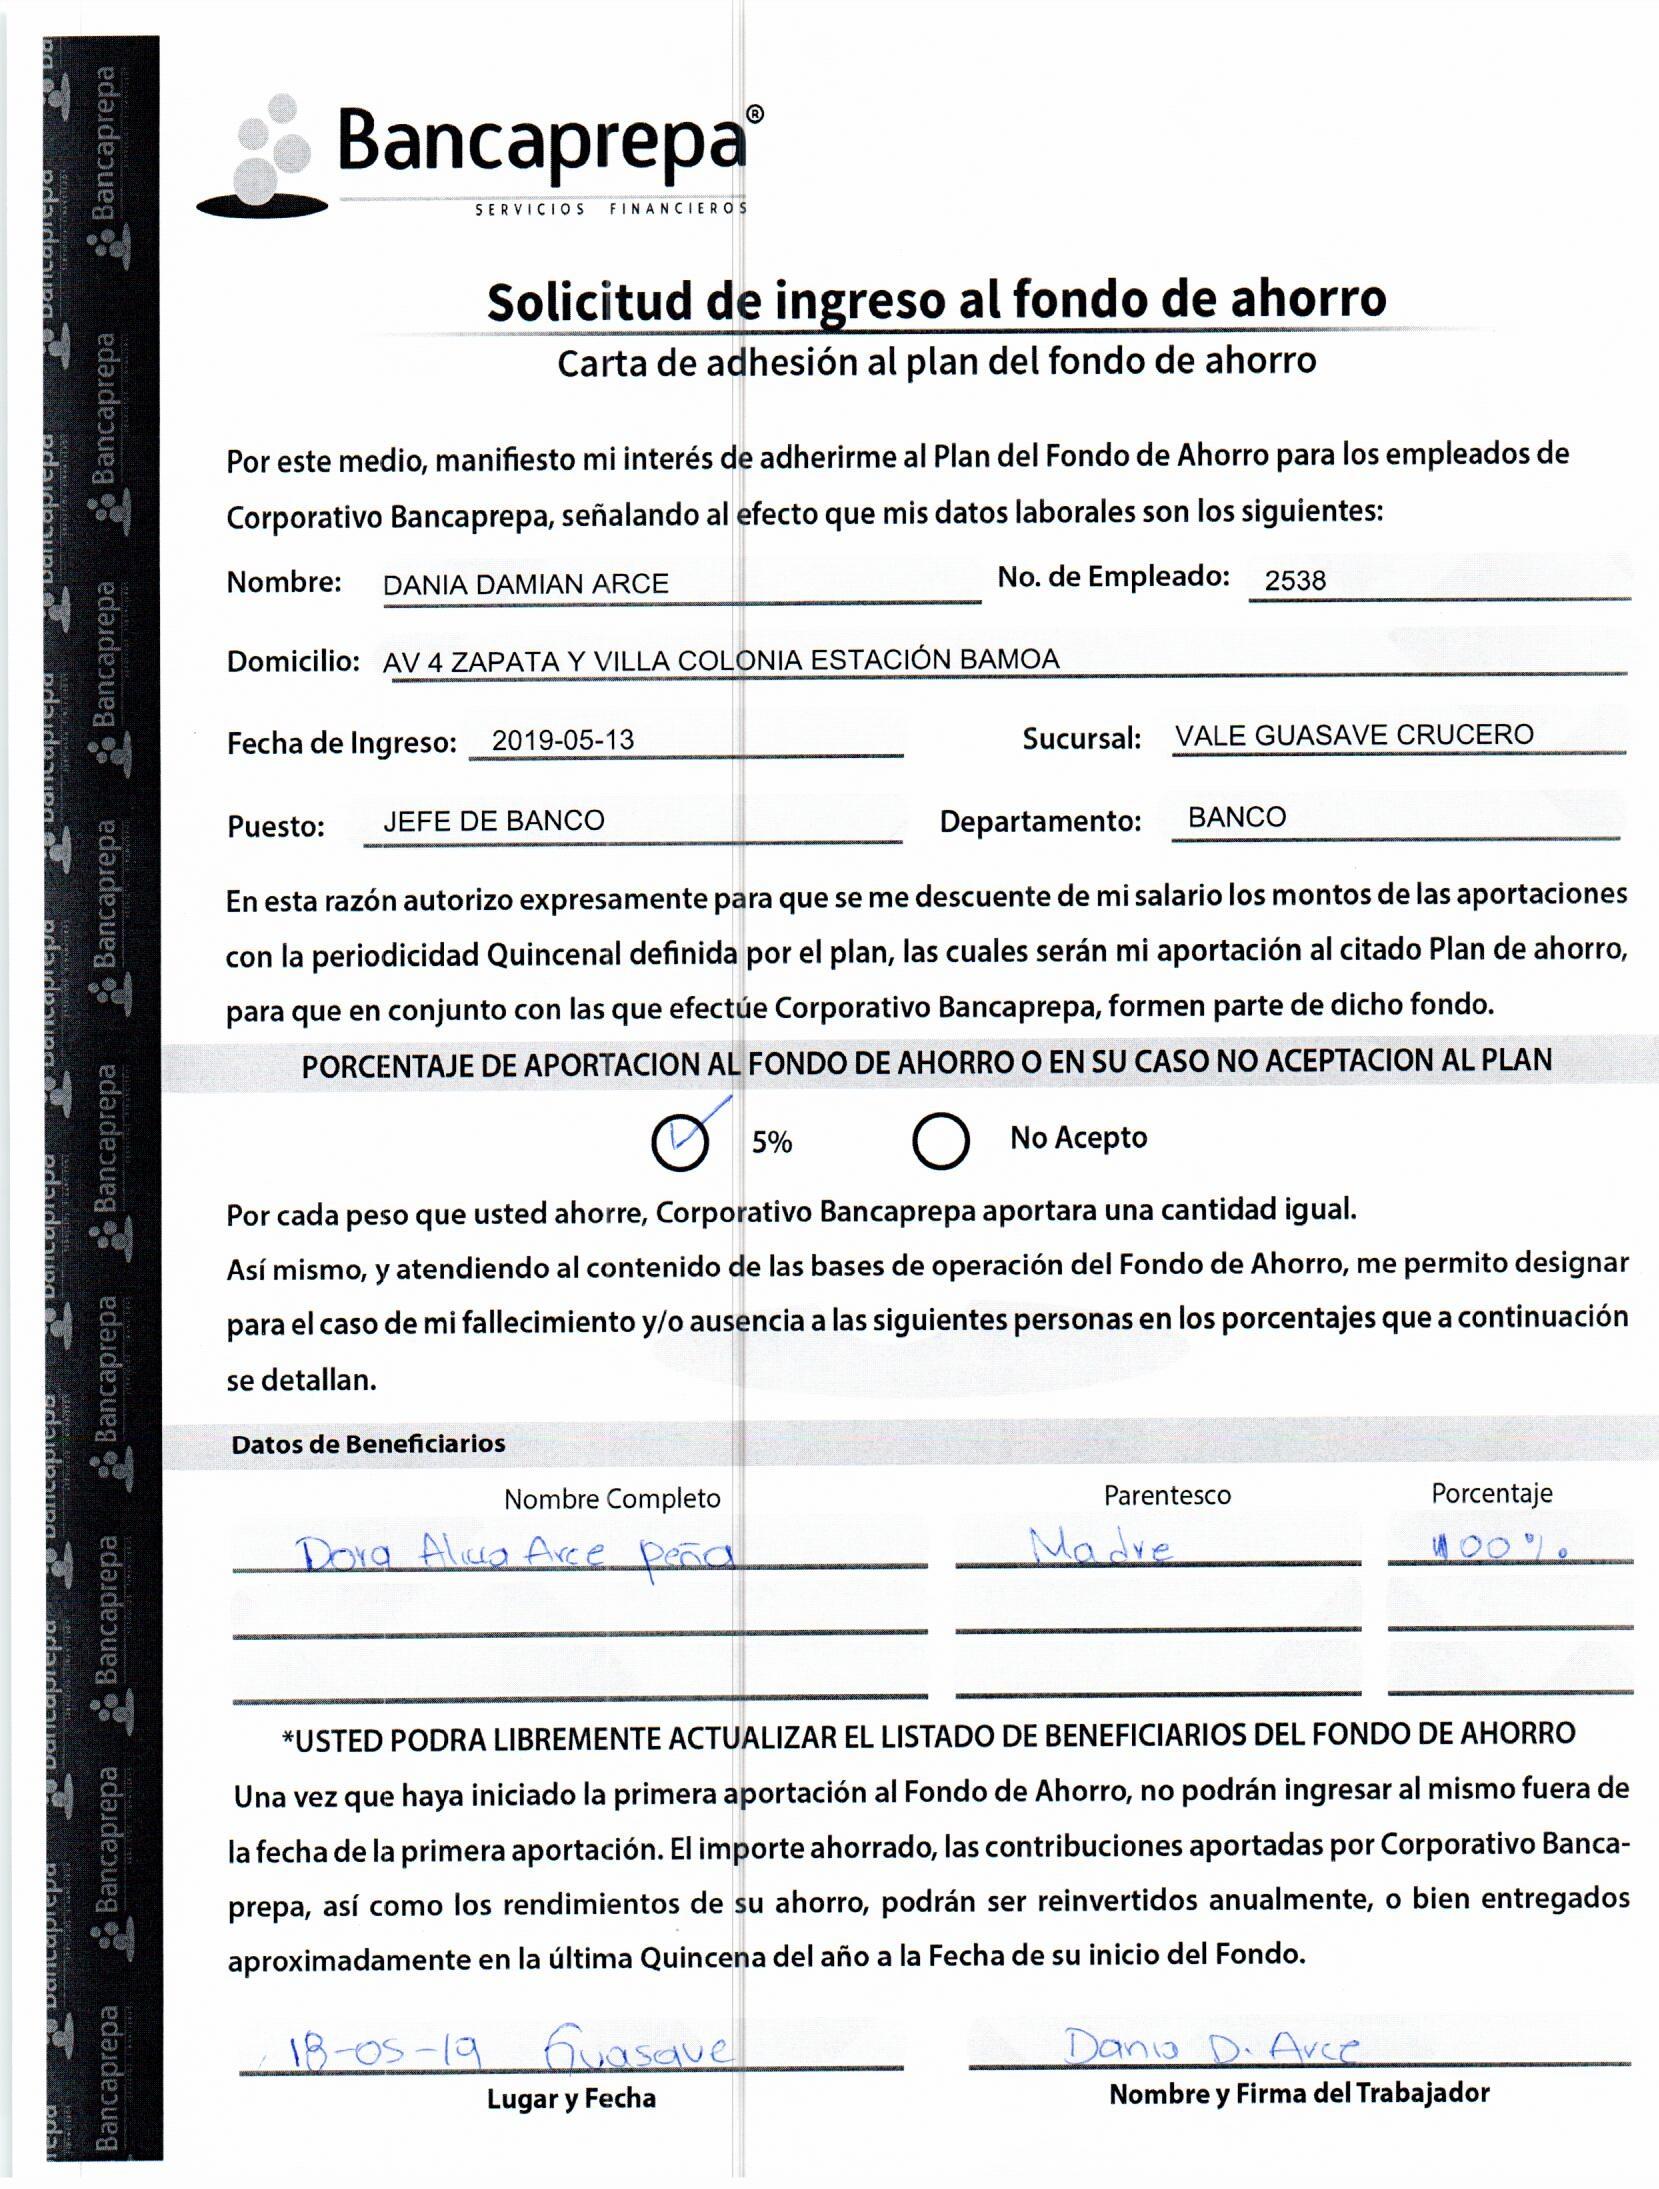 Bancaprepa®
SERVICIOS FINANCIEROS
Solicitud de ingreso al fondo de ahorro
Carta de adhesión al plan del fondo de ahorro
Por este medio, manifiesto mi interés de adherirme al Plan del Fondo de Ahorro para los empleados de
Corporativo Bancaprepa, señalando al efecto que mis datos laborales son los siguientes:
Nombre: DANIA DAMIAN ARCE No. de Empleado: 2538
Domicilio: AV 4 ZAPATA Y VILLA COLONIA ESTACIÓN BAMOA
Fecha de Ingreso: 2019-05-13 Sucursal: VALE GUASAVE CRUCERO
Puesto: JEFE DE BANCO Departamento: BANCO
En esta razón autorizo expresamente para que se me descuente de mi salario los montos de las aportaciones
con la periodicidad Quincenal definida por el plan, las cuales serán mi aportación al citado Plan de ahorro,
para que en conjunto con las que efectúe Corporativo Bancaprepa, formen parte de dicho fondo.
PORCENTAJE DE APORTACION AL FONDO DE AHORRO O EN SU CASO NO ACEPTACION AL PLAN
5% No Acepto
Por cada peso que usted ahorre, Corporativo Bancaprepa aportara una cantidad igual.
Así mismo, y atendiendo al contenido de las bases de operación del Fondo de Ahorro, me permito designar
para el caso de mi fallecimiento y/o ausencia a las siguientes personas en los porcentajes que a continuación
se detallan.
Datos de Beneficiarios
Nombre Completo Parentesco Porcentaje
Dora Alicia Arce Peña Madre 100%
*USTED PODRA LIBREMENTE ACTUALIZAR EL LISTADO DE BENEFICIARIOS DEL FONDO DE AHORRO
Una vez que haya iniciado la primera aportación al Fondo de Ahorro, no podrán ingresar al mismo fuera de
la fecha de la primera aportación. El importe ahorrado, las contribuciones aportadas por Corporativo Banca-
prepa, así como los rendimientos de su ahorro, podrán ser reinvertidos anualmente, o bien entregados
aproximadamente en la última Quincena del año a la Fecha de su inicio del Fondo.
18-05-19 Guasave Dania D. Arce
Lugar y Fecha Nombre y Firma del Trabajador